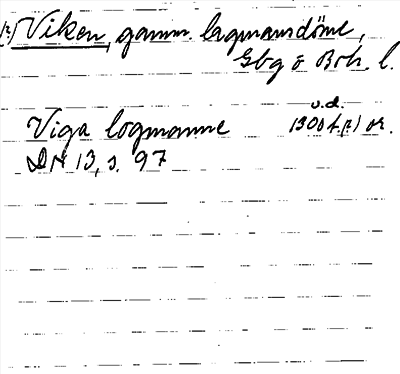 (2) Viken, gamm. lagmansdöme,
Gbg o Boh. l.
u.d.
Viga logmanne 1300 t. (?) or.
DN 13, s. 97